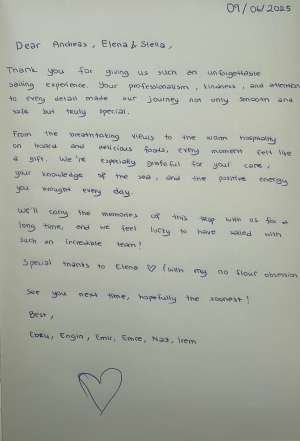 09/06/2025
Dear Andreas, Elena & Stella,
Thank you for giving us such an unforgettable
sailing experience. Your professionalism, kindness, and attention
to every detail made our journey not only smooth and
safe but truly special.
From the breathtaking views to the warm hospitality
on board and delicious foods, every moment felt like
a gift. We're especially grateful for your care,
your knowledge of the sea, and the positive energy
you brought every day.
We'll carry the memories of this trip with us for a
long time, and we feel lucky to have sailed with
such an incredible team!
Special thanks to Elena ♡ (with my no flour obsession
See you next time, hopefully the soonest!
Best,
Ebru, Engin, Emir, Emre, Naz, Irem